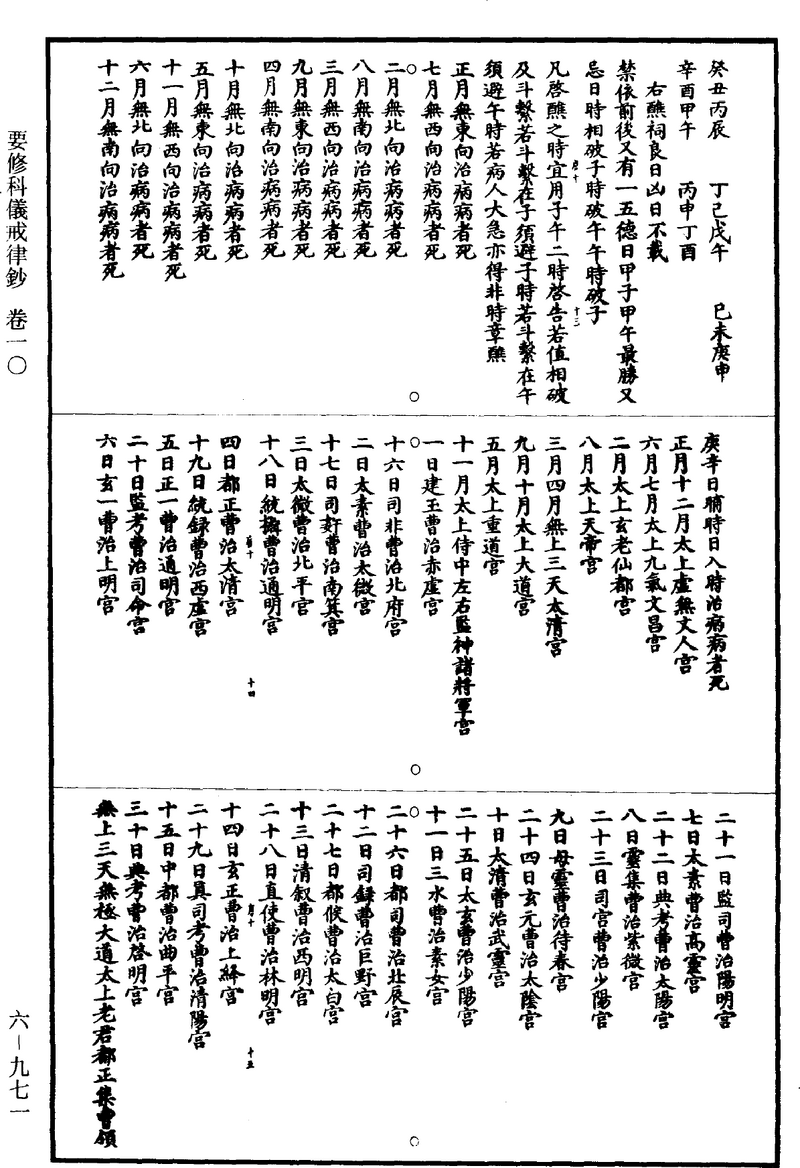 癸丑丙辰　丁巳戊午　已未庚申
辛酉甲午　丙申丁酉
右醮祠良日凶日不載
禁依前後又有一五德日甲子甲午最勝又
忌日時相破子時破午午時破子
凡啓醮之時宜用子午二時啓告若值相破
及斗繫若斗繫在子須避子時若斗繫在午
須避午時若病人大急亦得非時章醮
正月無東向治病病者死
七月無西向治病病者死
二月無北向治病病者死
八月無南向治病病者死
三月無西向治病病者死
九月無東向治病病者死
四月無南向治病病者死
十月無北向治病病者死
五月無東向治病病者死
十一月無西向治病病者死
六月無北向治病病者死
十二月無南向治病病者死
庚辛日晡時日入時治病病者死
正月十二月太上虛無丈人宮
六月七月太上九氣文昌宮
二月太上玄老仙都宮
八月太上天帝宮
三月四月無上三天太清宮
九月十月太上大道宮
五月太上重道宮
十一月太上侍中左右監神諸將軍宮
一日建王曹治赤虛宮
十六日司非曹治北府宮
二日太素曹治太微宮
十七日司奸曹治南箕宮
三日太微曹治北平宮
十八日統攝曹治通明宮
四日都正曹治太清宮
十九日統錄曹治西虛宮
五日正一曹治通明宮
二十日監考曹治司命宮
六日玄一曹治上明宮
二十一日監司曹治陽明宮
七日太素曹治高靈宮
二十二日典考曹治太陽宮
八日靈集曹治紫微宮
二十三日司宮曹治少陽宮
九日母靈曹治待春宮
二十四日玄元曹治太陰宮
十日太清曹治武靈宮
二十五日太玄曹治少陽宮
十一日三水曹治素女宮
二十六日都司曹治北辰宮
十二日司錄曹治巨野宮
二十七日都候曹治太白宮
十三日清叙曹治西明宮
二十八日直使曹治林明宮
十四日玄正曹治上絳宮
二十九日真司考曹治清陽宮
十五日中都曹治曲平宮
三十日典考曹治啓明宮
無上三天無極大道太上老君都正集曹領
要修科儀戒律鈔　卷一〇
六－九七一
十三
十四
十五